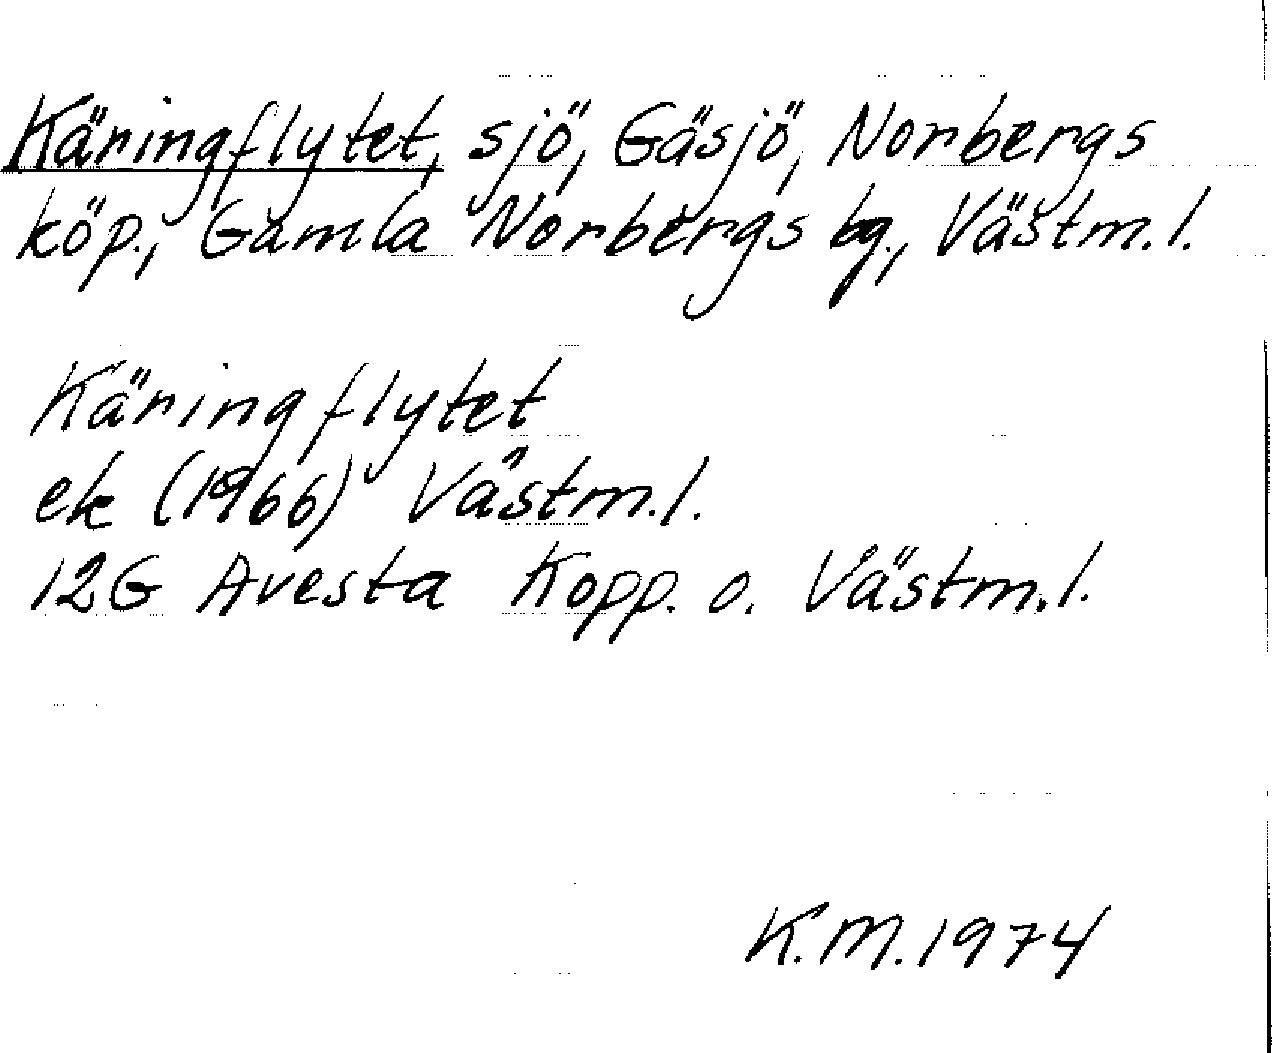 Käringflytet, sjö, Gäsjö, Norbergs
köp., Gamla Norbergs bg., Västm.l.
Käringflytet
ek (1966) Västm.l.
12G Avesta Kopp. o. Västm.l.
K.M.1974